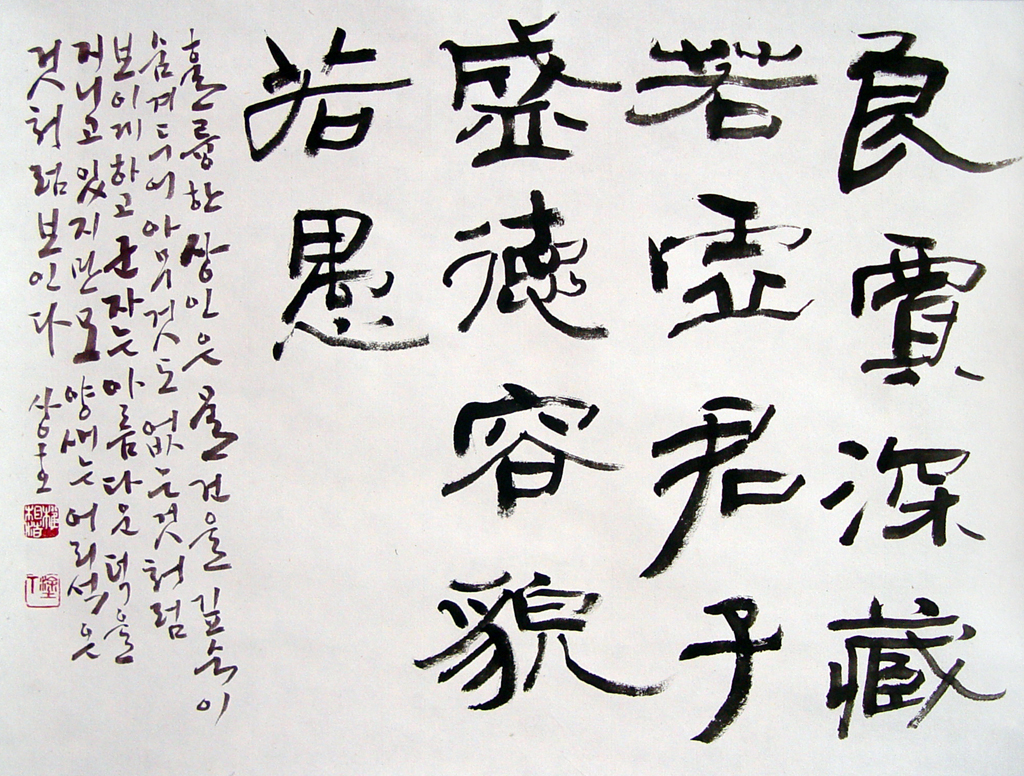 良賈深藏
若虛君子
盛德容貌
若愚
훌륭한 상인은 물건을 깊숙이
숨겨두어 아무것도 없는 것처럼
보이게 하고 군자는 아름다운 덕을
지니고 있지만 모양새는 어리석은
것처럼 보인다